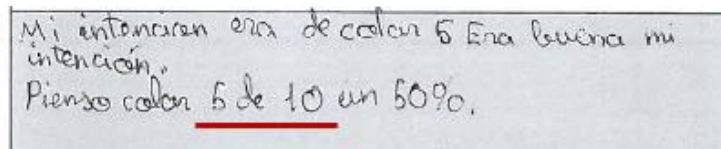 Mi intencion era de colar 5 Era buena mi
intención.
Pienso colar 5 de 10 un 50%.